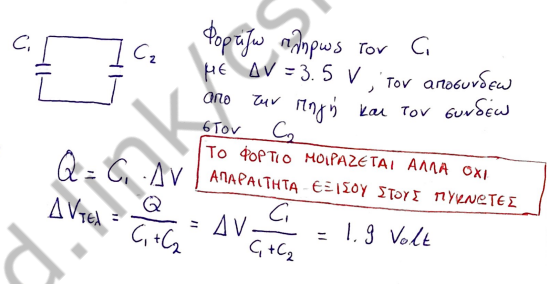 C₁
C₂
Φορτίζω πλήρως τον C₁
με ΔV = 3.5 V, τον αποσυνδέω
απο την πηγή και τον συνδέω
στον C₂
Q = C₁ · ΔV
ΤΟ ΦΟΡΤΙΟ ΜΟΙΡΑΖΕΤΑΙ ΑΛΛΑ ΟΧΙ
ΑΠΑΡΑΙΤΗΤΑ ΕΞΙΣΟΥ ΣΤΟΥΣ ΠΥΚΝΩΤΕΣ
ΔVτελ = Q / (C₁+C₂) = ΔV C₁ / (C₁+C₂) = 1.9 Volt
d.link/c